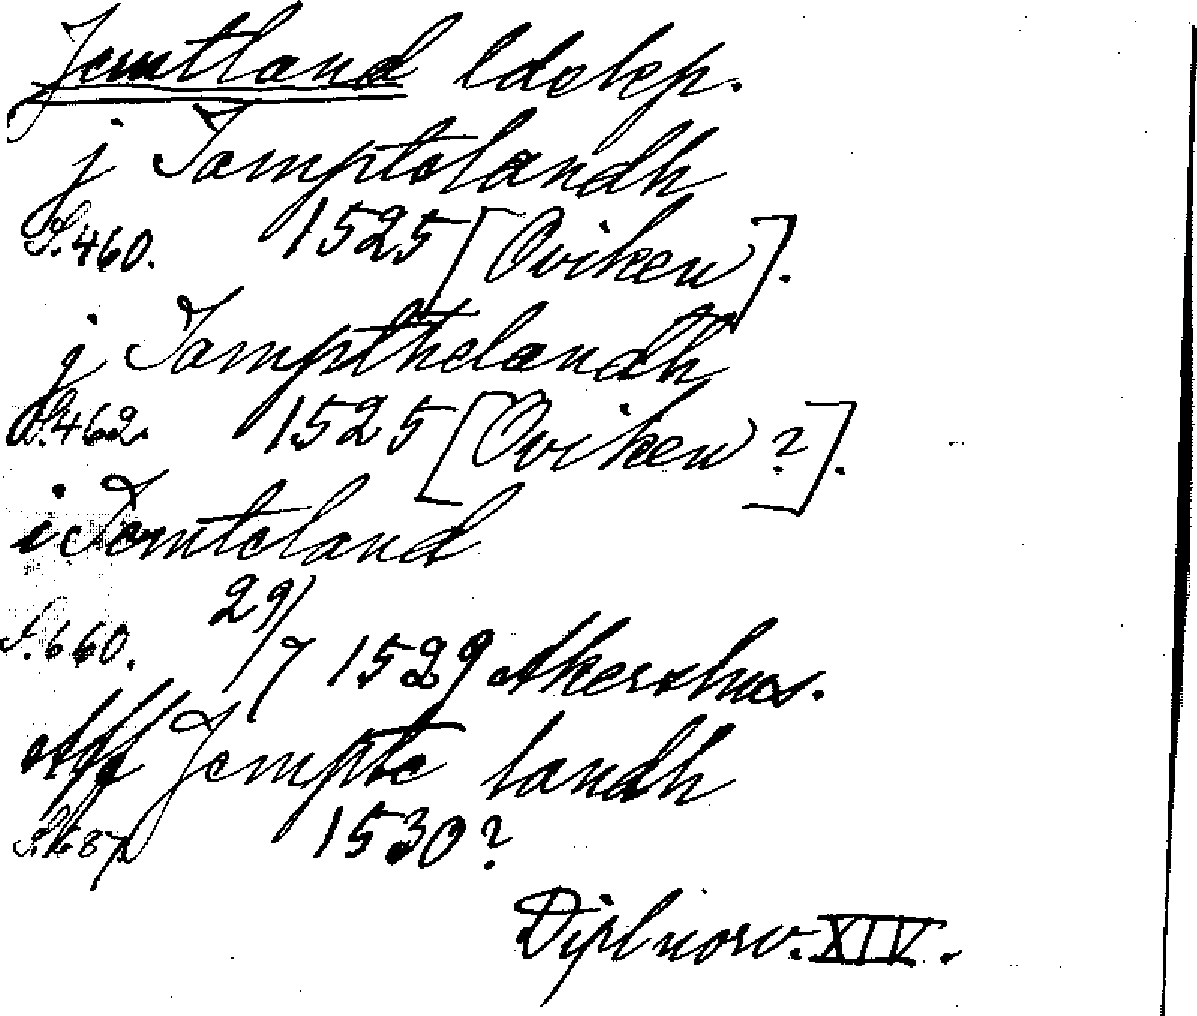 Jemtland ldskp.
j Jamptelandh
S. 460. 1525 [Oviken].
j Jampthelandh
S. 462. 1525 [Oviken?].
i Jemteland
S. 660. 29/7 1529 Akershus.
Aff Jempte landh
1530?
Dipl norv. XIV.